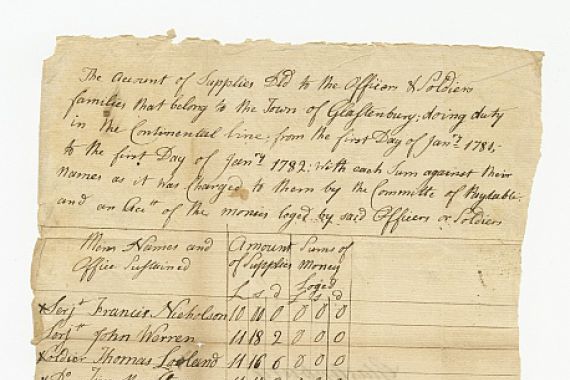 The Account of Supplies Dd to the Officers & Soldiers
families that belong to the Town of Glastenbury; doing duty
in the Continental line; from the first Day of Jany 1781;
to the first Day of Jany 1782; with each Sum against their
names as it was Charged to them by the Committe of Paytable.
and an Acct of the monies loged by said Officers or Soldiers
Mens Names and Amount Sums of
Office Sustained of Supplies Money
Loged
L s d L s d
x Serjt Francis Nicholson 10 10 0 0 0 0
Serjt John Warren 11 18 2 0 0 0
x Soldier Thomas Loveland 11 16 6 0 0 0
x Do